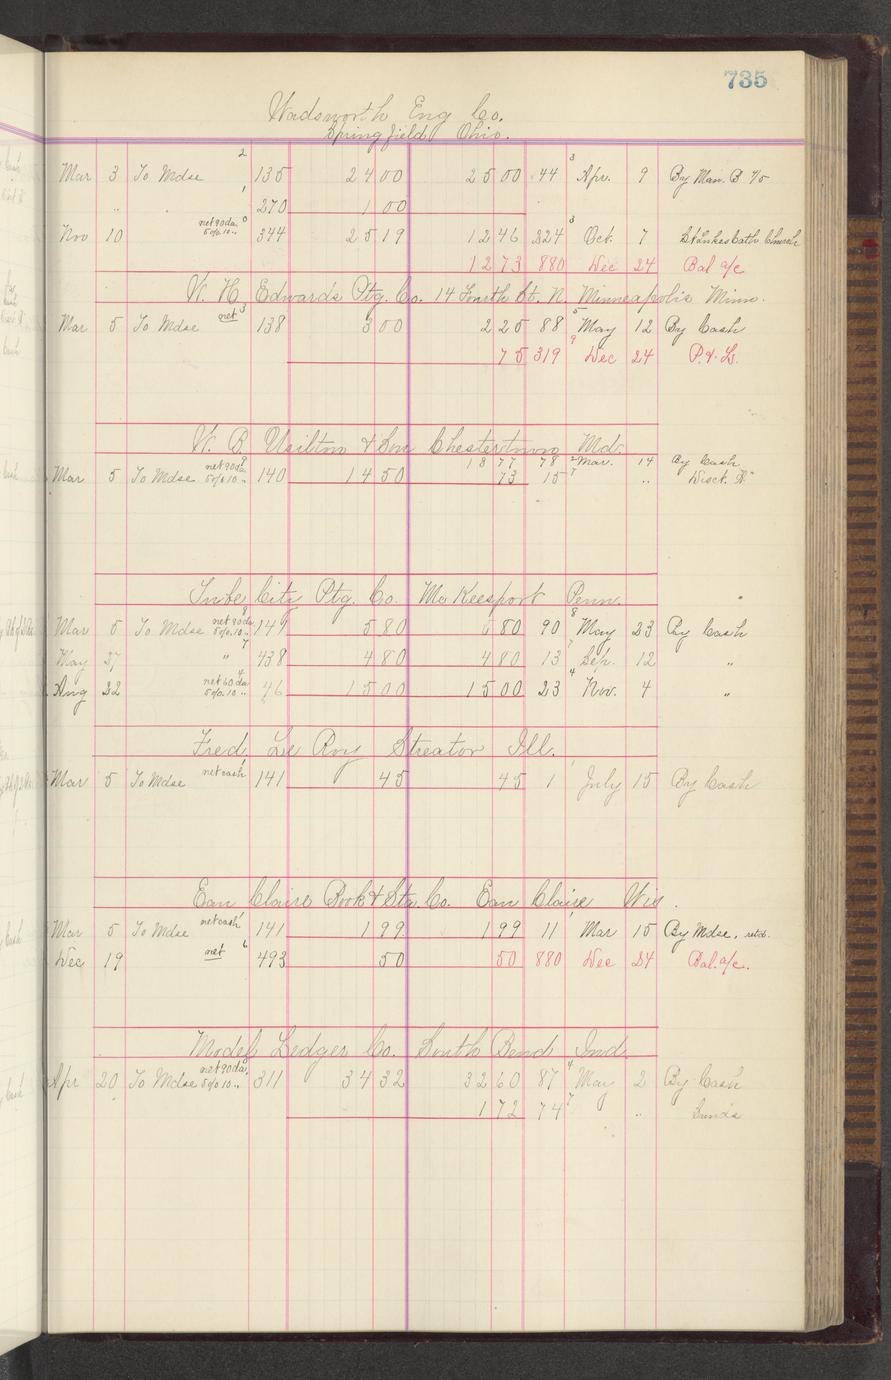 735
Wadsworth Eng Co.
Springfield Ohio.
Mar 3 To Mdse 2 135 24 00 25 00 44 3 Apr. 9 By Man. B
" 1 270 1 00
Nov 10 net 90 da. 5 0/0 10 " 0 344 25 19 12 46 224 3 Oct. 7 St Lukes Cath Church
12 73 880 Dec 24 Bal a/c
W. H. Edwards Ptg. Co. 14 Fourth St. N. Minneapolis Minn.
Mar 5 To Mdse net 3 138 3 00 2 25 88 5 May 12 By Cash
75 319 9 Dec 24 P. & L.
W. B. Usilton & Son Chestertown Md.
18 77 78 2 Mar. 14 By Cash
Mar 5 To Mdse net 90 da 5 0/0 10 " 140 14 50 73 15 7 " Disct.
City Ptg. Co. McKeesport Penn.
Mar 5 To Mdse net 90 da 5 0/0 10 " 8 147 5 80 5 80 90 8 May 23 By Cash
May 27 " 7 438 4 80 4 80 13 7 Sep. 12 "
Aug 22 net 60 da 5 0/0 10 " 4 46 15 00 15 00 23 4 Nov. 4 "
Fred Le Roy Streator Ill.
Mar 5 To Mdse net cash 1 141 45 45 1 1 July 15 By Cash
Eau Claire Book & Sta Co. Eau Claire Wis.
Mar 5 To Mdse net cash 1 141 1 99 1 99 11 1 Mar 15 By Mdse. retd.
Dec 19 net 6 493 50 50 880 Dec 24 Bal. a/c.
Model Ledger Co. South Bend Ind.
Apr 20 To Mdse net 90 da. 5 0/0 10 " 311 34 32 32 60 87 4 May 2 By Cash
1 72 74 7 " Sunds